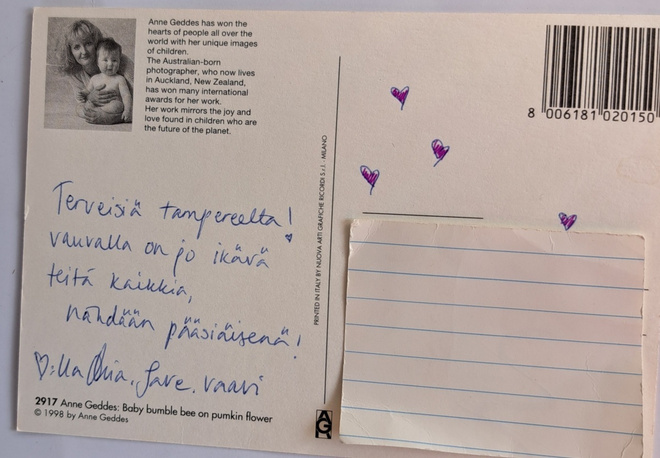 Anne Geddes has won the
hearts of people all over the
world with her unique images
of children.
The Australian-born
photographer, who now lives
in Auckland, New Zealand,
has won many international
awards for her work.
Her work mirrors the joy and
love found in children who are
the future of the planet.
8 006181 020150
PRINTED IN ITALY BY NUOVA ARTI GRAFICHE RICORDI S.r.l. - MILANO
Terveisiä tampereelta!
vauvalla on jo ikävä
teitä kaikkia,
nähdään pääsiäisenä!
♡:lla Mia, Jare, vaavi
2917 Anne Geddes: Baby bumble bee on pumkin flower
© 1998 by Anne Geddes
AGR